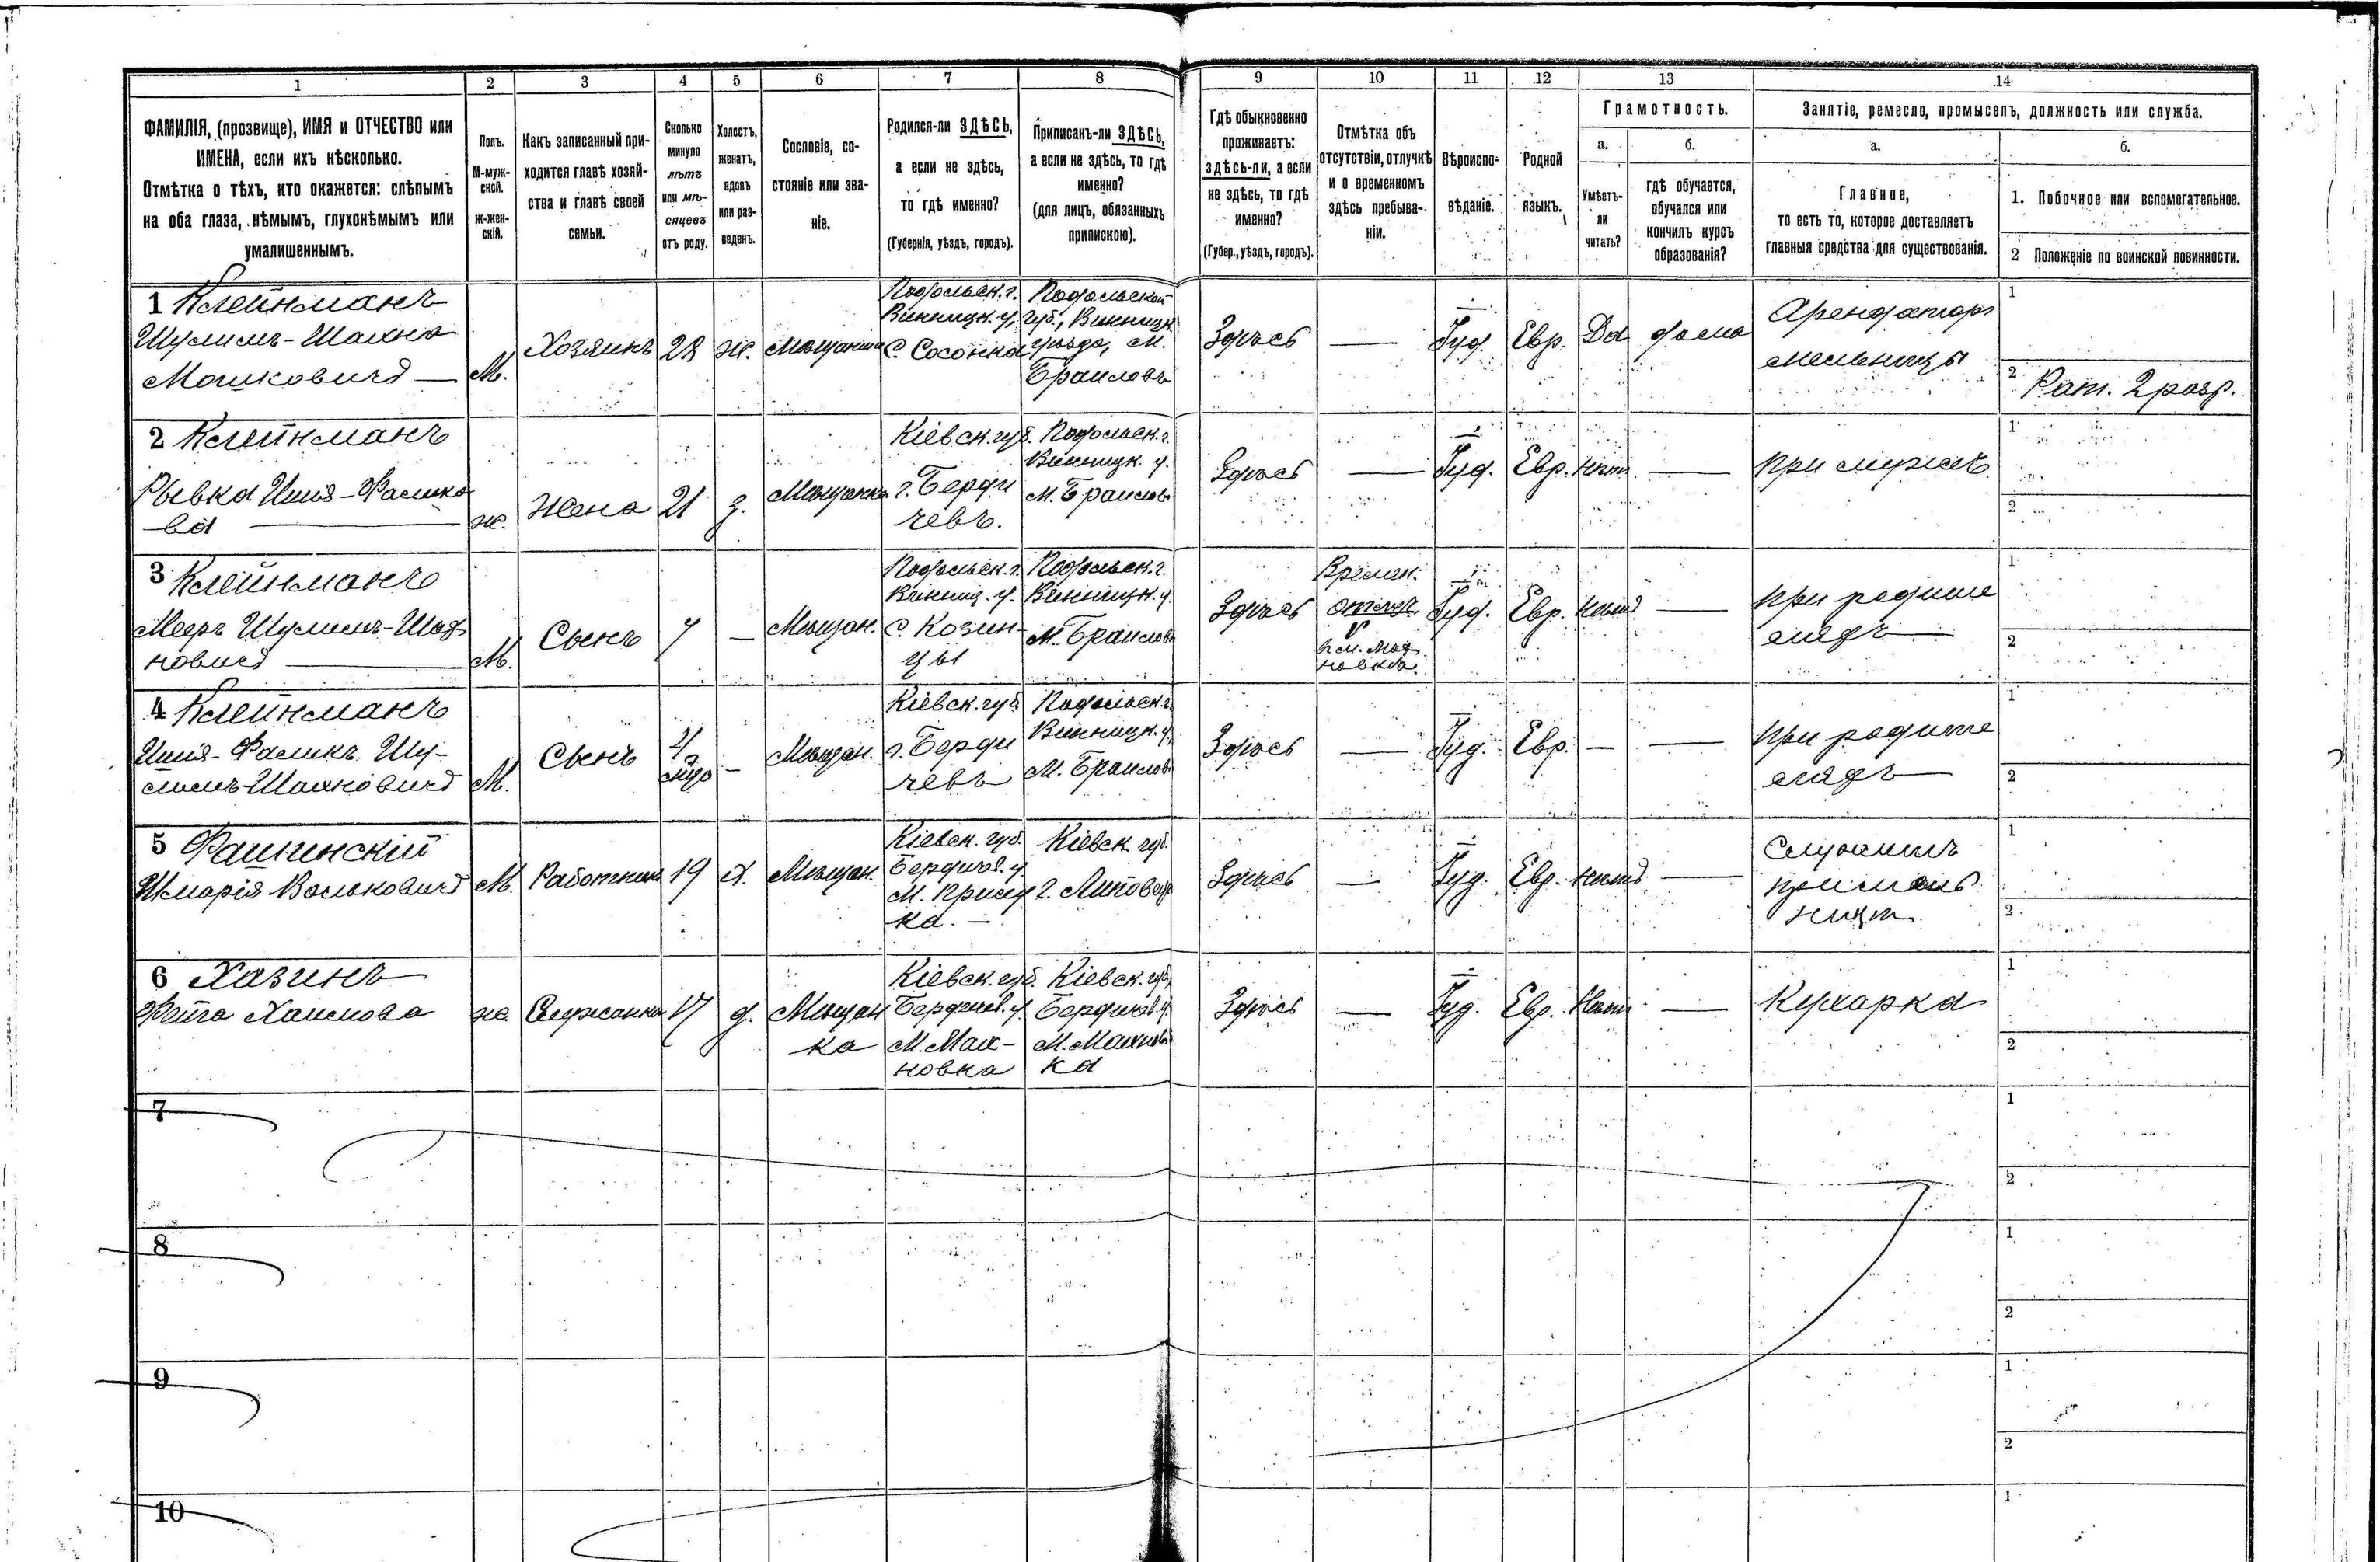 1 2 3 4 5 6 7 8 9 10 11 12 13 14
ФАМИЛІЯ, (прозвище), ИМЯ и ОТЧЕСТВО или
ИМЕНА, если ихъ нѣсколько.
Отмѣтка о тѣхъ, кто окажется: слѣпымъ
на оба глаза, нѣмымъ, глухонѣмымъ или
умалишеннымъ.
Полъ.
М-муж-
ской.
Ж-жен-
скій.
Какъ записанный при-
ходится главѣ хозяй-
ства и главѣ своей
семьи.
Сколько
минуло
лѣтъ
или мѣ-
сяцевъ
отъ роду.
Холостъ,
женатъ,
вдовъ
или раз-
веденъ.
Сословіе, со-
стояніе или зва-
ніе.
Родился-ли ЗДѢСЬ,
а если не здѣсь,
то гдѣ именно?
(Губернія, уѣздъ, городъ).
Приписанъ-ли ЗДѢСЬ,
а если не здѣсь, то гдѣ
именно?
(для лицъ, обязанныхъ
припискою).
Гдѣ обыкновенно
проживаетъ:
здѣсь-ли, а если
не здѣсь, то гдѣ
именно?
(Губер., уѣздъ, городъ).
Отмѣтка объ
отсутствіи, отлучкѣ
и о временномъ
здѣсь пребыва-
ніи.
Вѣроиспо-
вѣданіе.
Родной
языкъ.
Грамотность.
а.
Умѣетъ-
ли
читать?
б.
гдѣ обучается,
обучался или
кончилъ курсъ
образованія?
Занятіе, ремесло, промыселъ, должность или служба.
а.
Главное,
то есть то, которое доставляетъ
главныя средства для существованія.
б.
1. Побочное или вспомогательное.
2 Положеніе по воинской повинности.
1 Клейнманъ
Шулимъ-Шахна
Мошковичъ
М.
Хозяинъ
28
ж.
Мѣщанинъ
Подольск. г.
Винницк. у.
с. Сосонка
Подольской
губ., Винницк.
уѣзда, м.
Браиловъ
Здѣсь
—
Іуд.
Евр.
Да
дома
Арендаторъ
мельницы
1
2 Рат. 2 разр.
2 Клейнманъ
Рывка Шия-Фалико
ва
ж.
Жена
21
з.
Мѣщанка
Кіевск. губ.
г. Берди
чевъ.
Подольск. г.
Винницк. у.
м. Браиловъ
Здѣсь
—
Іуд.
Евр.
нѣтъ
—
при мужѣ
1
2
3 Клейнманъ
Мееръ Шулимъ-Шах
новичъ
М.
Сынъ
—
Мѣщан.
Подольск. г.
Винниц. у.
с. Козин-
цы
Подольск. г.
Винницк. у.
м. Браиловъ
Здѣсь
Времен.
отлуч.
в м. Мах
новкѣ
Іуд.
Евр.
нѣтъ
—
при родите
ляхъ
1
2
4 Клейнманъ
Шия-Фаликъ Шу-
лимъ Шахновичъ
М.
Сынъ
—
Мѣщан.
Кіевск. губ.
г. Берди
чевъ
Подольск. г.
Винницк. у.
м. Браиловъ
Здѣсь
—
Іуд.
Евр.
—
—
при родите
ляхъ
1
2
5
Шмарія Вольковичъ
М.
Работникъ
19
х.
Мѣщан.
Кіевск. губ.
Бердичев. у.
М.
ка.
Кіевск. губ.
г. Липовецъ
Здѣсь
—
Іуд.
Евр.
нѣтъ
—
Служитъ
при мель
ницѣ
1
2
6 Хазинъ
Фейга Хаимова
ж.
Служанка
17
д.
Мѣщан
ка
Кіевск. губ.
Бердичев. у.
М. Мах-
новка
Кіевск. губ.
Бердичев. у.
М. Махнов
ка
Здѣсь
—
Іуд.
Евр.
Нѣтъ
—
Кухарка
1
2
7
1
2
8
1
2
9
1
2
10
1